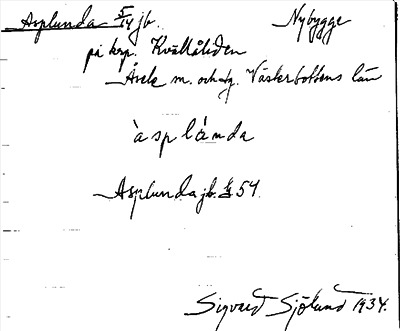 Asplunda 5/14 jb. Nybygge
på krp. Kvällåliden
Åsele sn. och tg. Västerbottens län
àsplánda
Asplunda jb. 54
Sigvard Sjölund 1934.